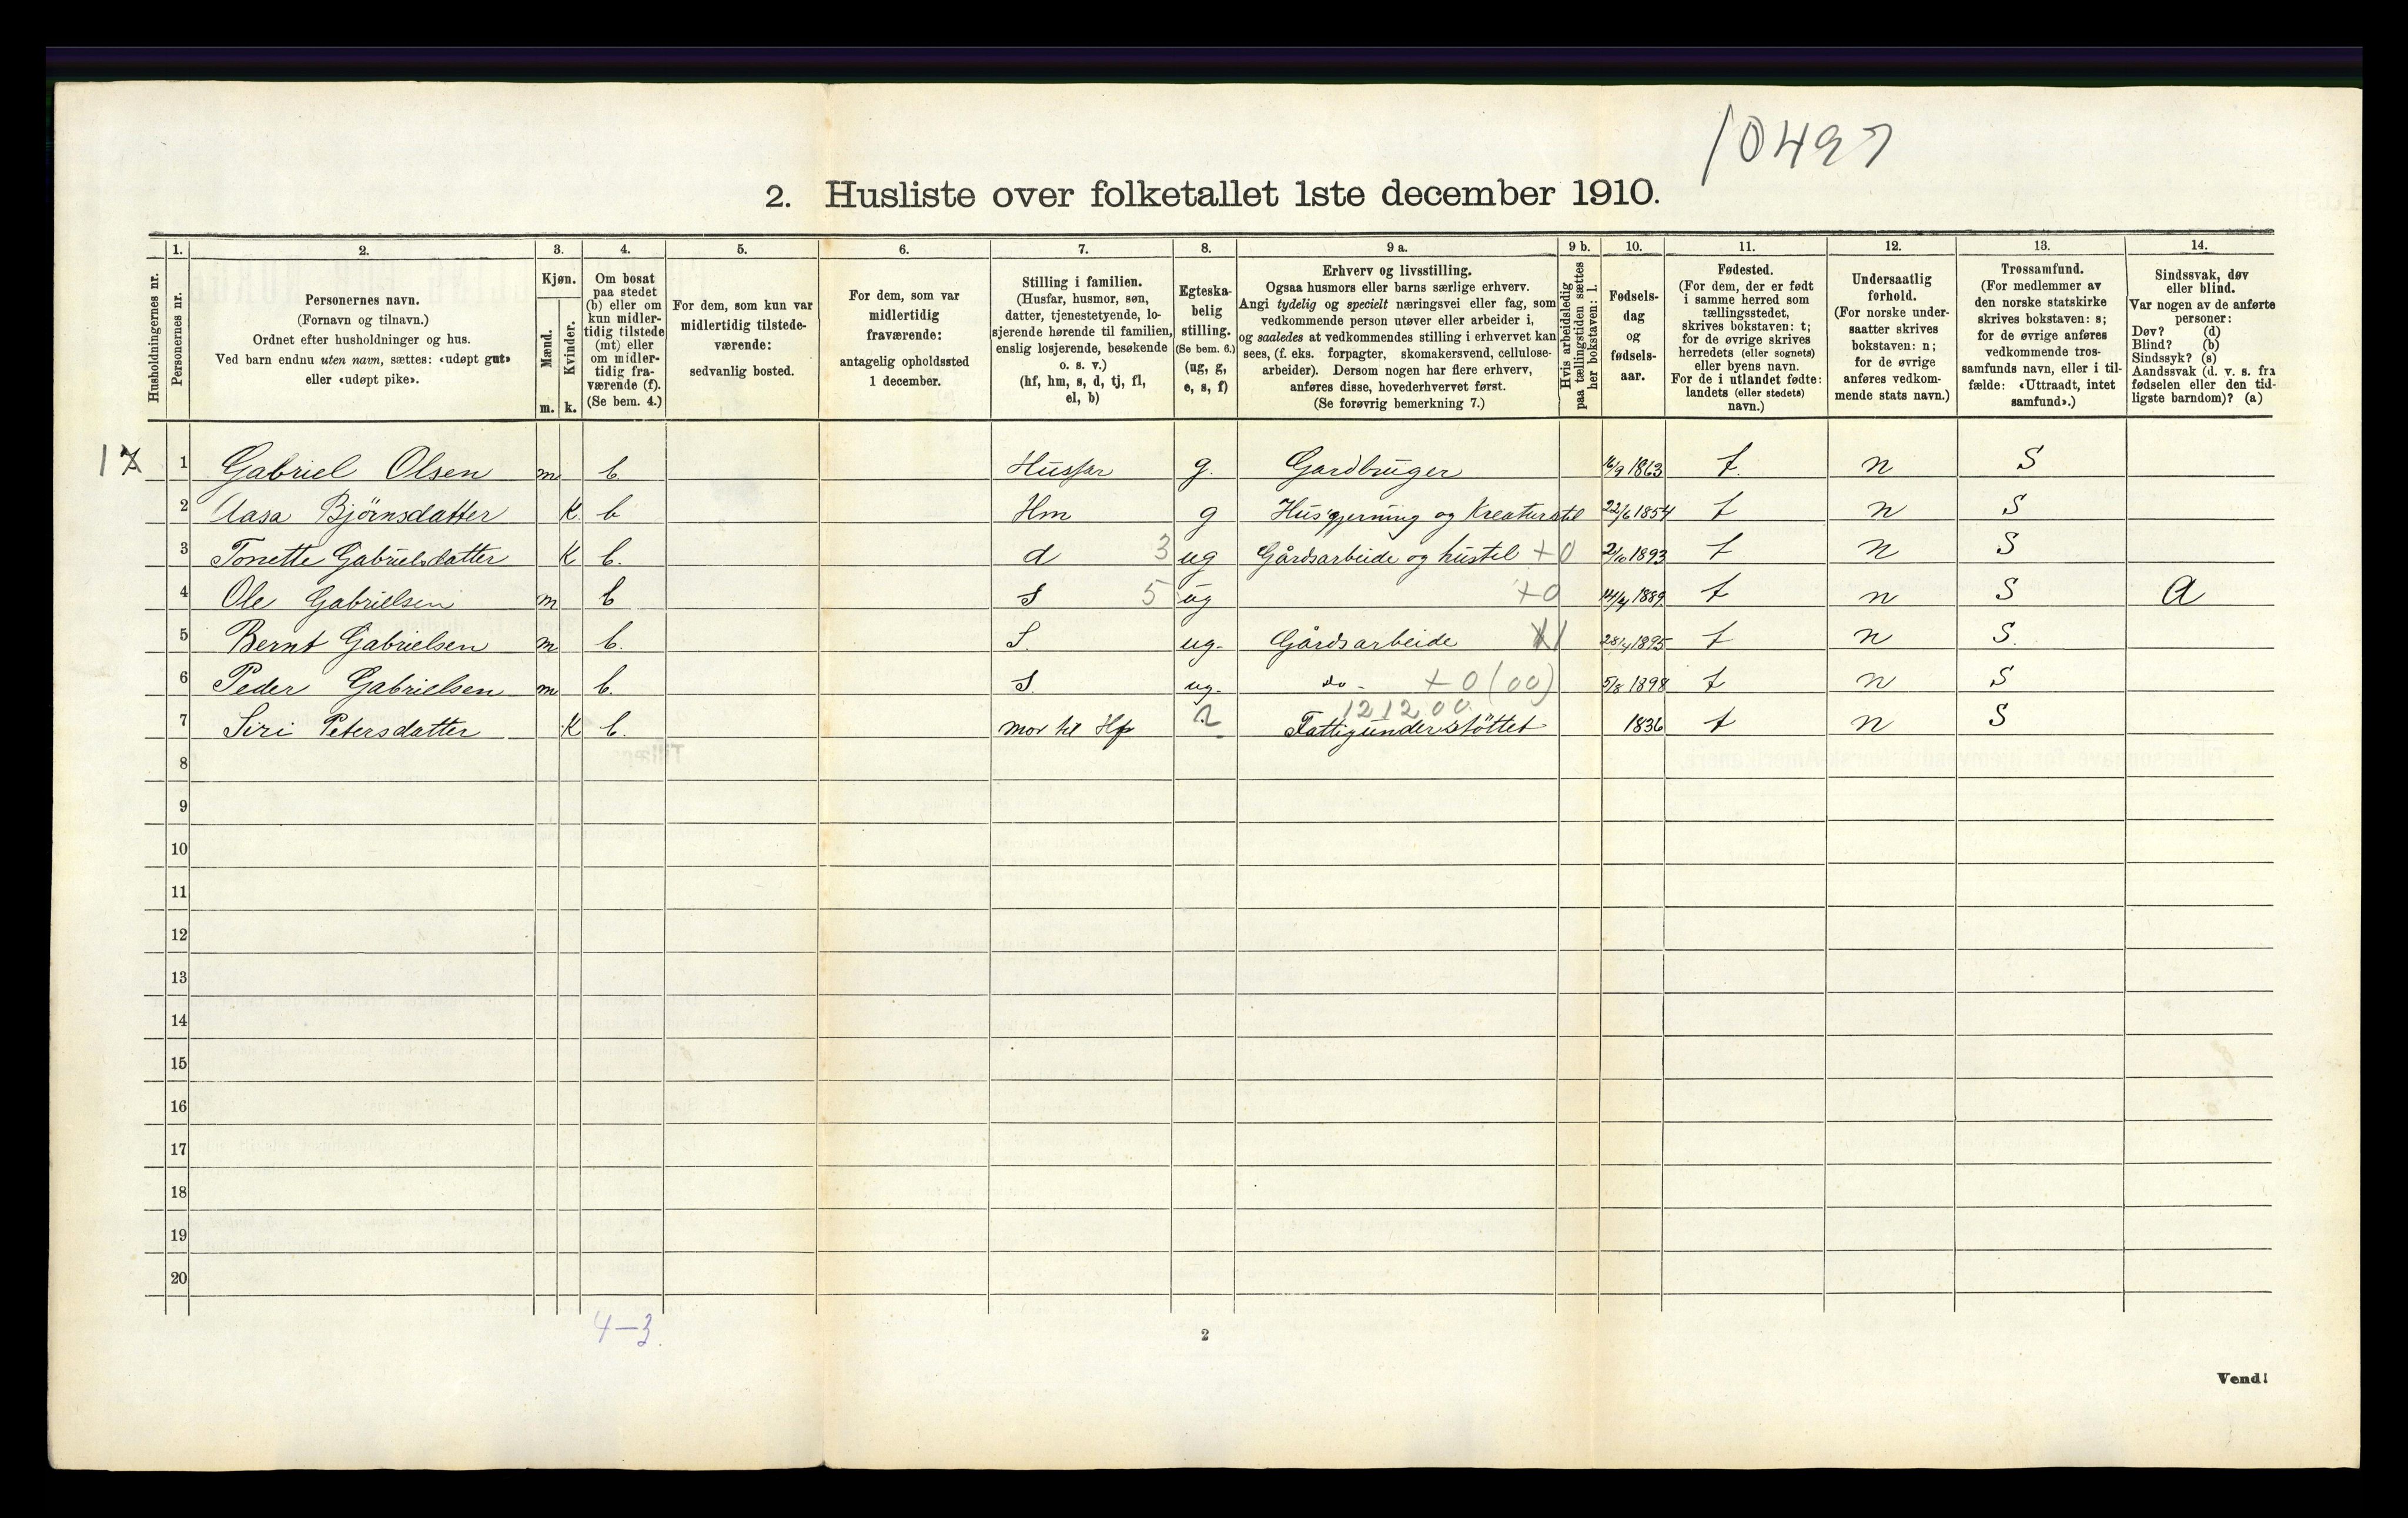 10497
2. Husliste over folketallet 1ste december 1910.
Husholdningernes nr.
1. Personernes nr.
2. Personernes navn.
(Fornavn og tilnavn.)
Ordnet efter husholdninger og hus.
Ved barn endnu uten navn, sættes: «udøpt gut»
eller «udøpt pike».
3. Kjøn.
Mænd. m.
Kvinder. k.
4. Om bosat
paa stedet
(b) eller om
kun midler-
tidig tilstede
(mt) eller
om midler-
tidig fra-
værende (f).
(Se bem. 4.)
5. For dem, som kun var
midlertidig tilstede-
værende:
sedvanlig bosted.
6. For dem, som var
midlertidig
fraværende:
antagelig opholdssted
1 december.
7. Stilling i familien.
(Husfar, husmor, søn,
datter, tjenestetyende, lo-
sjerende hørende til familien,
enslig losjerende, besøkende
o. s. v.)
(hf, hm, s, d, tj, fl,
el, b)
8. Egteska-
belig
stilling.
(Se bem. 6.)
(ug, g,
e, s, f)
9 a. Erhverv og livsstilling.
Ogsaa husmors eller barns særlige erhverv.
Angi tydelig og specielt næringsvei eller fag, som
vedkommende person utøver eller arbeider i,
og saaledes at vedkommendes stilling i erhvervet kan
sees, (f. eks. forpagter, skomakersvend, cellulose-
arbeider). Dersom nogen har flere erhverv,
anføres disse, hovederhvervet først.
(Se forøvrig bemerkning 7.)
9 b. Hvis arbeidsledig
paa tællingstiden sættes
her bokstaven: l.
10. Fødsels-
dag
og
fødsels-
aar.
11. Fødested.
(For dem, der er født
i samme herred som
tællingsstedet,
skrives bokstaven: t;
for de øvrige skrives
herredets (eller sognets)
eller byens navn.
For de i utlandet fødte:
landets (eller stedets)
navn.)
12. Undersaatlig
forhold.
(For norske under-
saatter skrives
bokstaven: n;
for de øvrige
anføres vedkom-
mende stats navn.)
13. Trossamfund.
(For medlemmer av
den norske statskirke
skrives bokstaven: s;
for de øvrige anføres
vedkommende tros-
samfunds navn, eller i til-
fælde: «Uttraadt, intet
samfund».)
14. Sindssvak, døv
eller blind.
Var nogen av de anførte
personer:
Døv? (d)
Blind? (b)
Sindssyk? (s)
Aandssvak (d. v. s. fra
fødselen eller den tid-
ligste barndom)? (a)
1 1 Gabriel Olsen m b. Husfar g. Gardbruger 16/9 1863 t. n S
2 Aasa Bjørnsdatter K b Hm g Husgjerning og Kreaturstel 22/6 1854 t n S
3 Tonette Gabrielsdatter K b. d 3 ug Gårdsarbeide og hustel +0 2/10 1893 t n S
4 Ole Gabrielsen m b S 5 ug +0 14/4 1889 t n S A
5 Bernt Gabrielsen m b. S. ug. Gårdsarbeide 1 28/4 1895 t n S.
6 Peder Gabrielsen m b. S. ug. do - +0 (00) 5/8 1898 t n S
121200
7 Siri Petersdatter K b. mor til Hf Fattigunderstöttet 1836 t n S
8
9
10
11
12
13
14
15
16
17
18
19
20
4-3.
2
Vend!